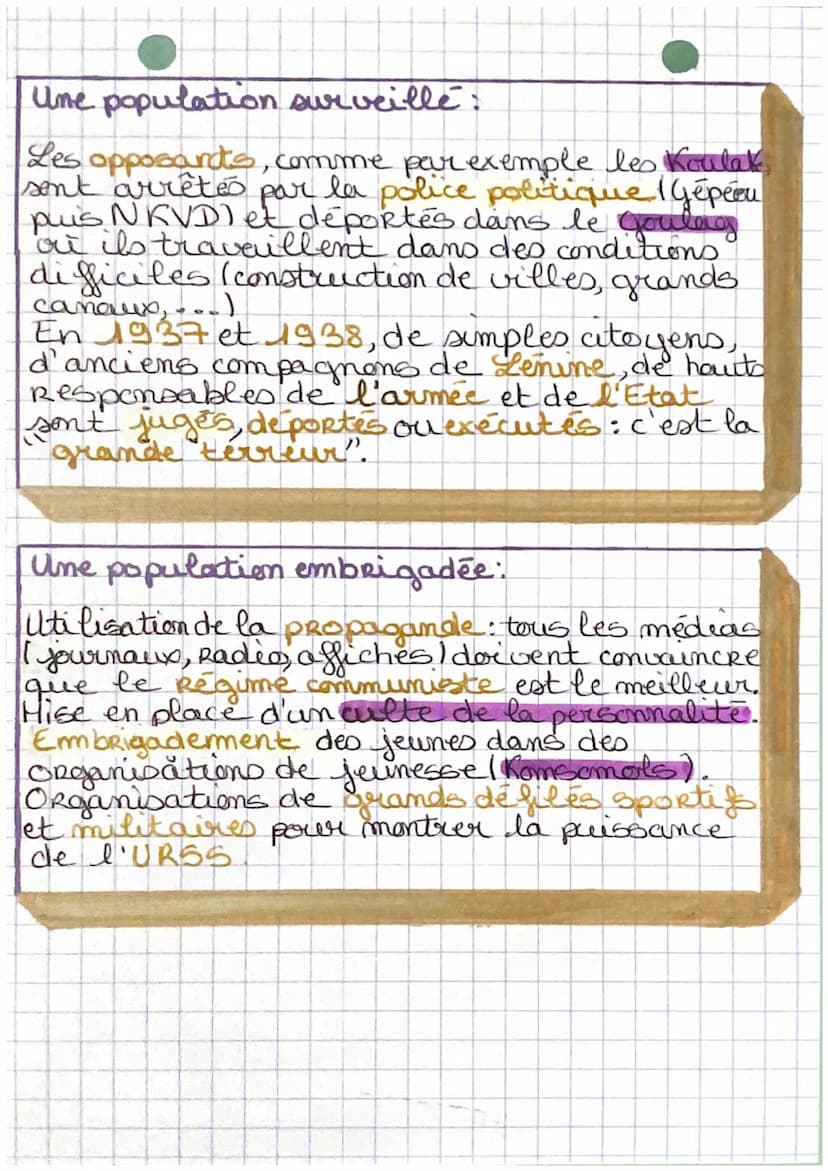 Une population surveillé :
Les opposants, comme par exemple les Koulak,
sont arrêtés par la police politique (Gépéou
puis NKVD) et déportés dans le Goulag
où ils travaillent dans des conditions
difficiles (construction de villes, grands
canaux, ...)
En 1937 et 1938, de simples citoyens,
d'anciens compagnons de Lénine, de hauts
responsables de l'armée et de l'Etat
sont jugés, déportés ou exécutés : c'est la
"grande terreur".
Une population embrigadée :
Utilisation de la propagande : tous les médias
(journaux, radio, affiches) doivent convaincre
que le régime communiste est le meilleur.
Mise en place d'un culte de la personnalité.
Embrigadement des jeunes dans des
organisations de jeunesse (Komsomols).
Organisations de grands défilés sportifs
et militaires pour montrer la puissance
de l'URSS